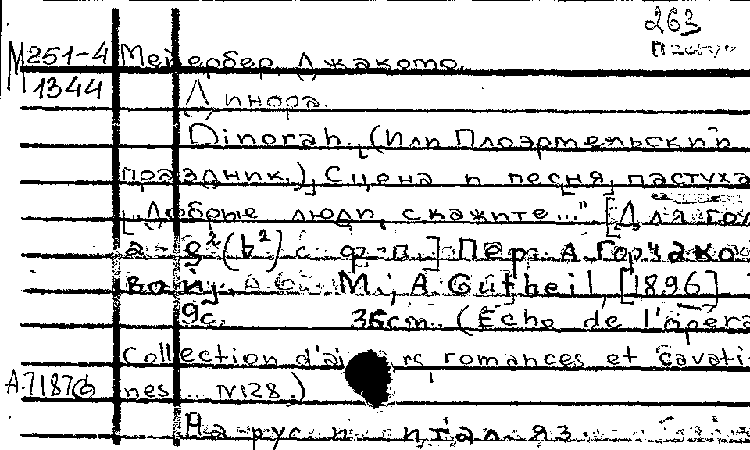 263
М 251-4 Мейербер, Джакомо.
1344 Динора.
Dinorah. (Или Плоэрмельский
праздник.). Сцена и песня пастуха
"Добрые люди, скажите..." [Для гол
a - g²(b²) с ф-п.] Пер. А. Горчако
вой. М., A. Gutheil, [1896]
9с. 36cm. (Echo de l'opéra
Collection d'airs, romances et cavati
A.7187б nes. N128.)
На рус. и итал. яз.